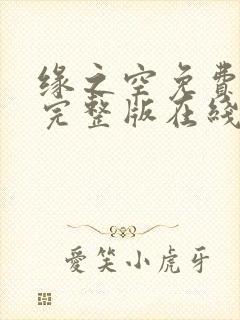 缘之空免費
完整版在綫
愛笑小虎牙